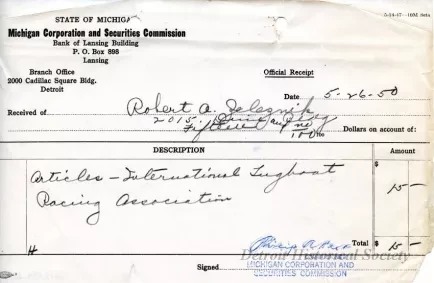 STATE OF MICHIGAN
5-14-47—10M Sets
Michigan Corporation and Securities Commission
Bank of Lansing Building
P. O. Box 898
Lansing
Branch Office
2000 Cadillac Square Bldg.
Detroit
Official Receipt
Date 5-26-50
Received of Robert A.
2015
Fifteen and no/100 Dollars on account of:
DESCRIPTION Amount
Articles - International Tugboat $ 15 —
Racing Association
Total $ 15 —
Detroit Historical Society
Signed
MICHIGAN CORPORATION AND
SECURITIES COMMISSION